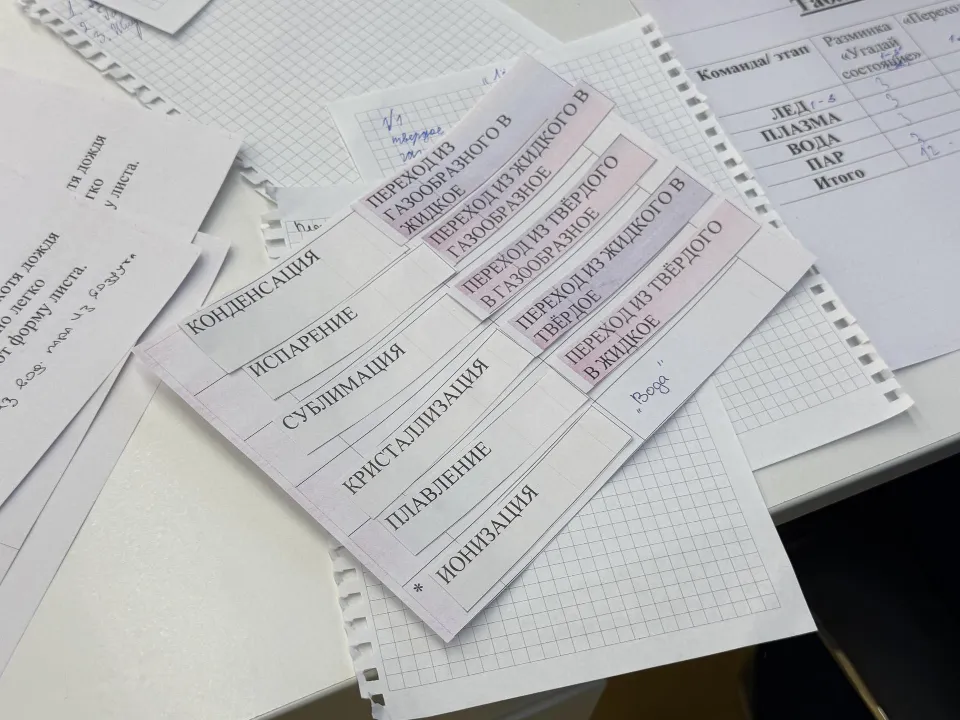 твердое
Команда/ этап
Разминка
«Угадай
состояние»
ЛЕД
3
ПЛАЗМА
3
ВОДА
ПАР
12
Итого
тя дождя
гко
у листа.
хотя дождя
но легко
от форму листа.
КОНДЕНСАЦИЯ
ПЕРЕХОД ИЗ
ГАЗООБРАЗНОГО В
ЖИДКОЕ
ИСПАРЕНИЕ
ПЕРЕХОД ИЗ ЖИДКОГО В
ГАЗООБРАЗНОЕ
СУБЛИМАЦИЯ
ПЕРЕХОД ИЗ ТВЁРДОГО
В ГАЗООБРАЗНОЕ
КРИСТАЛЛИЗАЦИЯ
ПЕРЕХОД ИЗ ЖИДКОГО В
ТВЁРДОЕ
ПЛАВЛЕНИЕ
ПЕРЕХОД ИЗ ТВЁРДОГО
В ЖИДКОЕ
* ИОНИЗАЦИЯ
„Вода"